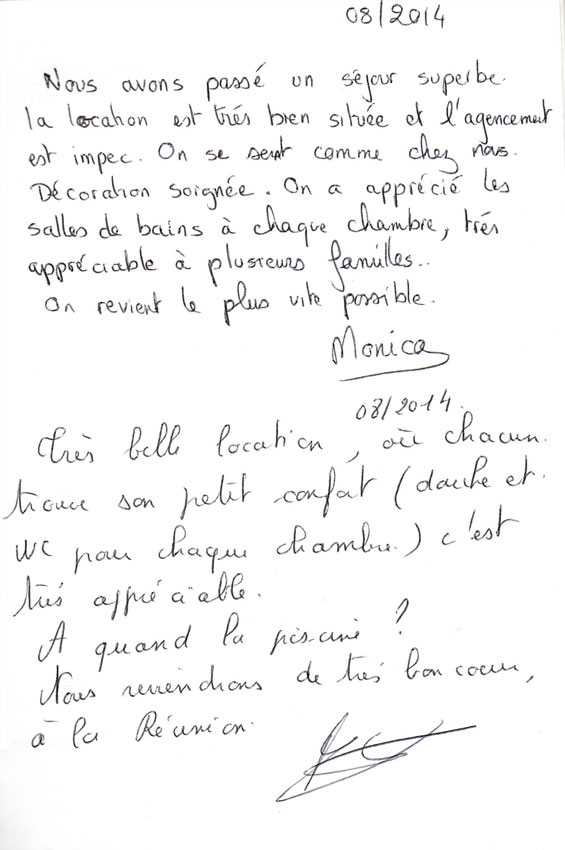 08/2014
Nous avons passé un séjour superbe.
la location est trés bien située et l'agencement
est impec. On se sent comme chez nous.
Décoration soignée. On a apprécié les
salles de bains à chaque chambre, trés
appréciable à plusieurs familles..
On revient le plus vite possible.
Monica
08/2014.
Très belle location, où chacun.
trouve son petit confort (douche et.
WC pour chaque chambre.) c'est
très appréciable.
A quand la piscine ?
Nous reviendrons de très bon coeur,
à la Réunion.